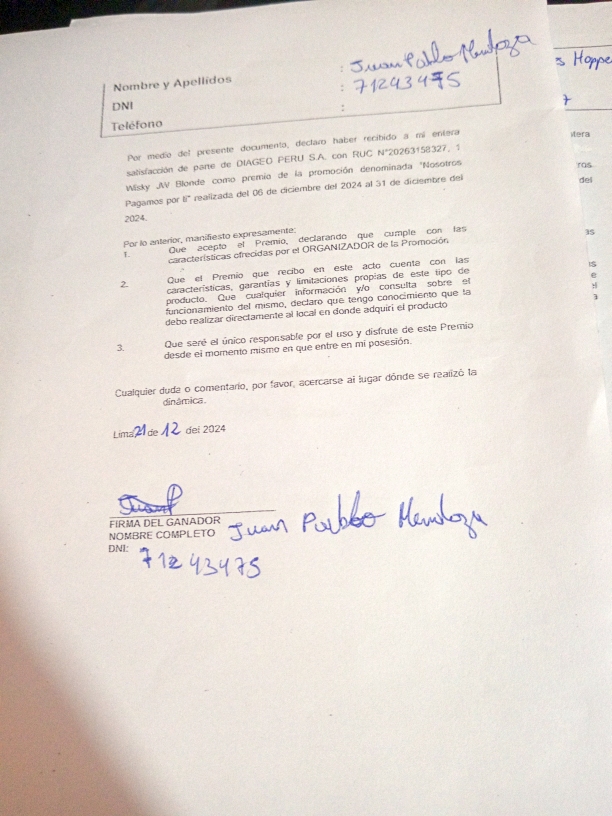 Nombre y Apellidos : Juan Pablo Mendoza
DNI : 71243475
Teléfono :
Por medio del presente documento, declaro haber recibido a mi entera
satisfacción de parte de DIAGEO PERU S.A. con RUC N°20263158327, 1
Wisky JW Blonde como premio de la promoción denominada "Nosotros
Pagamos por ti" realizada del 06 de diciembre del 2024 al 31 de diciembre del
2024.
Por lo anterior, manifiesto expresamente:
1. Que acepto el Premio, declarando que cumple con las
características ofrecidas por el ORGANIZADOR de la Promoción
2. Que el Premio que recibo en este acto cuenta con las
características, garantías y limitaciones propias de este tipo de
producto. Que cualquier información y/o consulta sobre el
funcionamiento del mismo, declaro que tengo conocimiento que la
debo realizar directamente al local en donde adquirí el producto
3. Que seré el único responsable por el uso y disfrute de este Premio
desde el momento mismo en que entre en mi posesión.
Cualquier duda o comentario, por favor, acercarse al lugar dónde se realizó la
dinámica.
Lima 21 de 12 del 2024
FIRMA DEL GANADOR
NOMBRE COMPLETO Juan Pablo Mendoza
DNI: 71243475
s Hoppe
7
ntera
ros
del
as
as
e
el
a